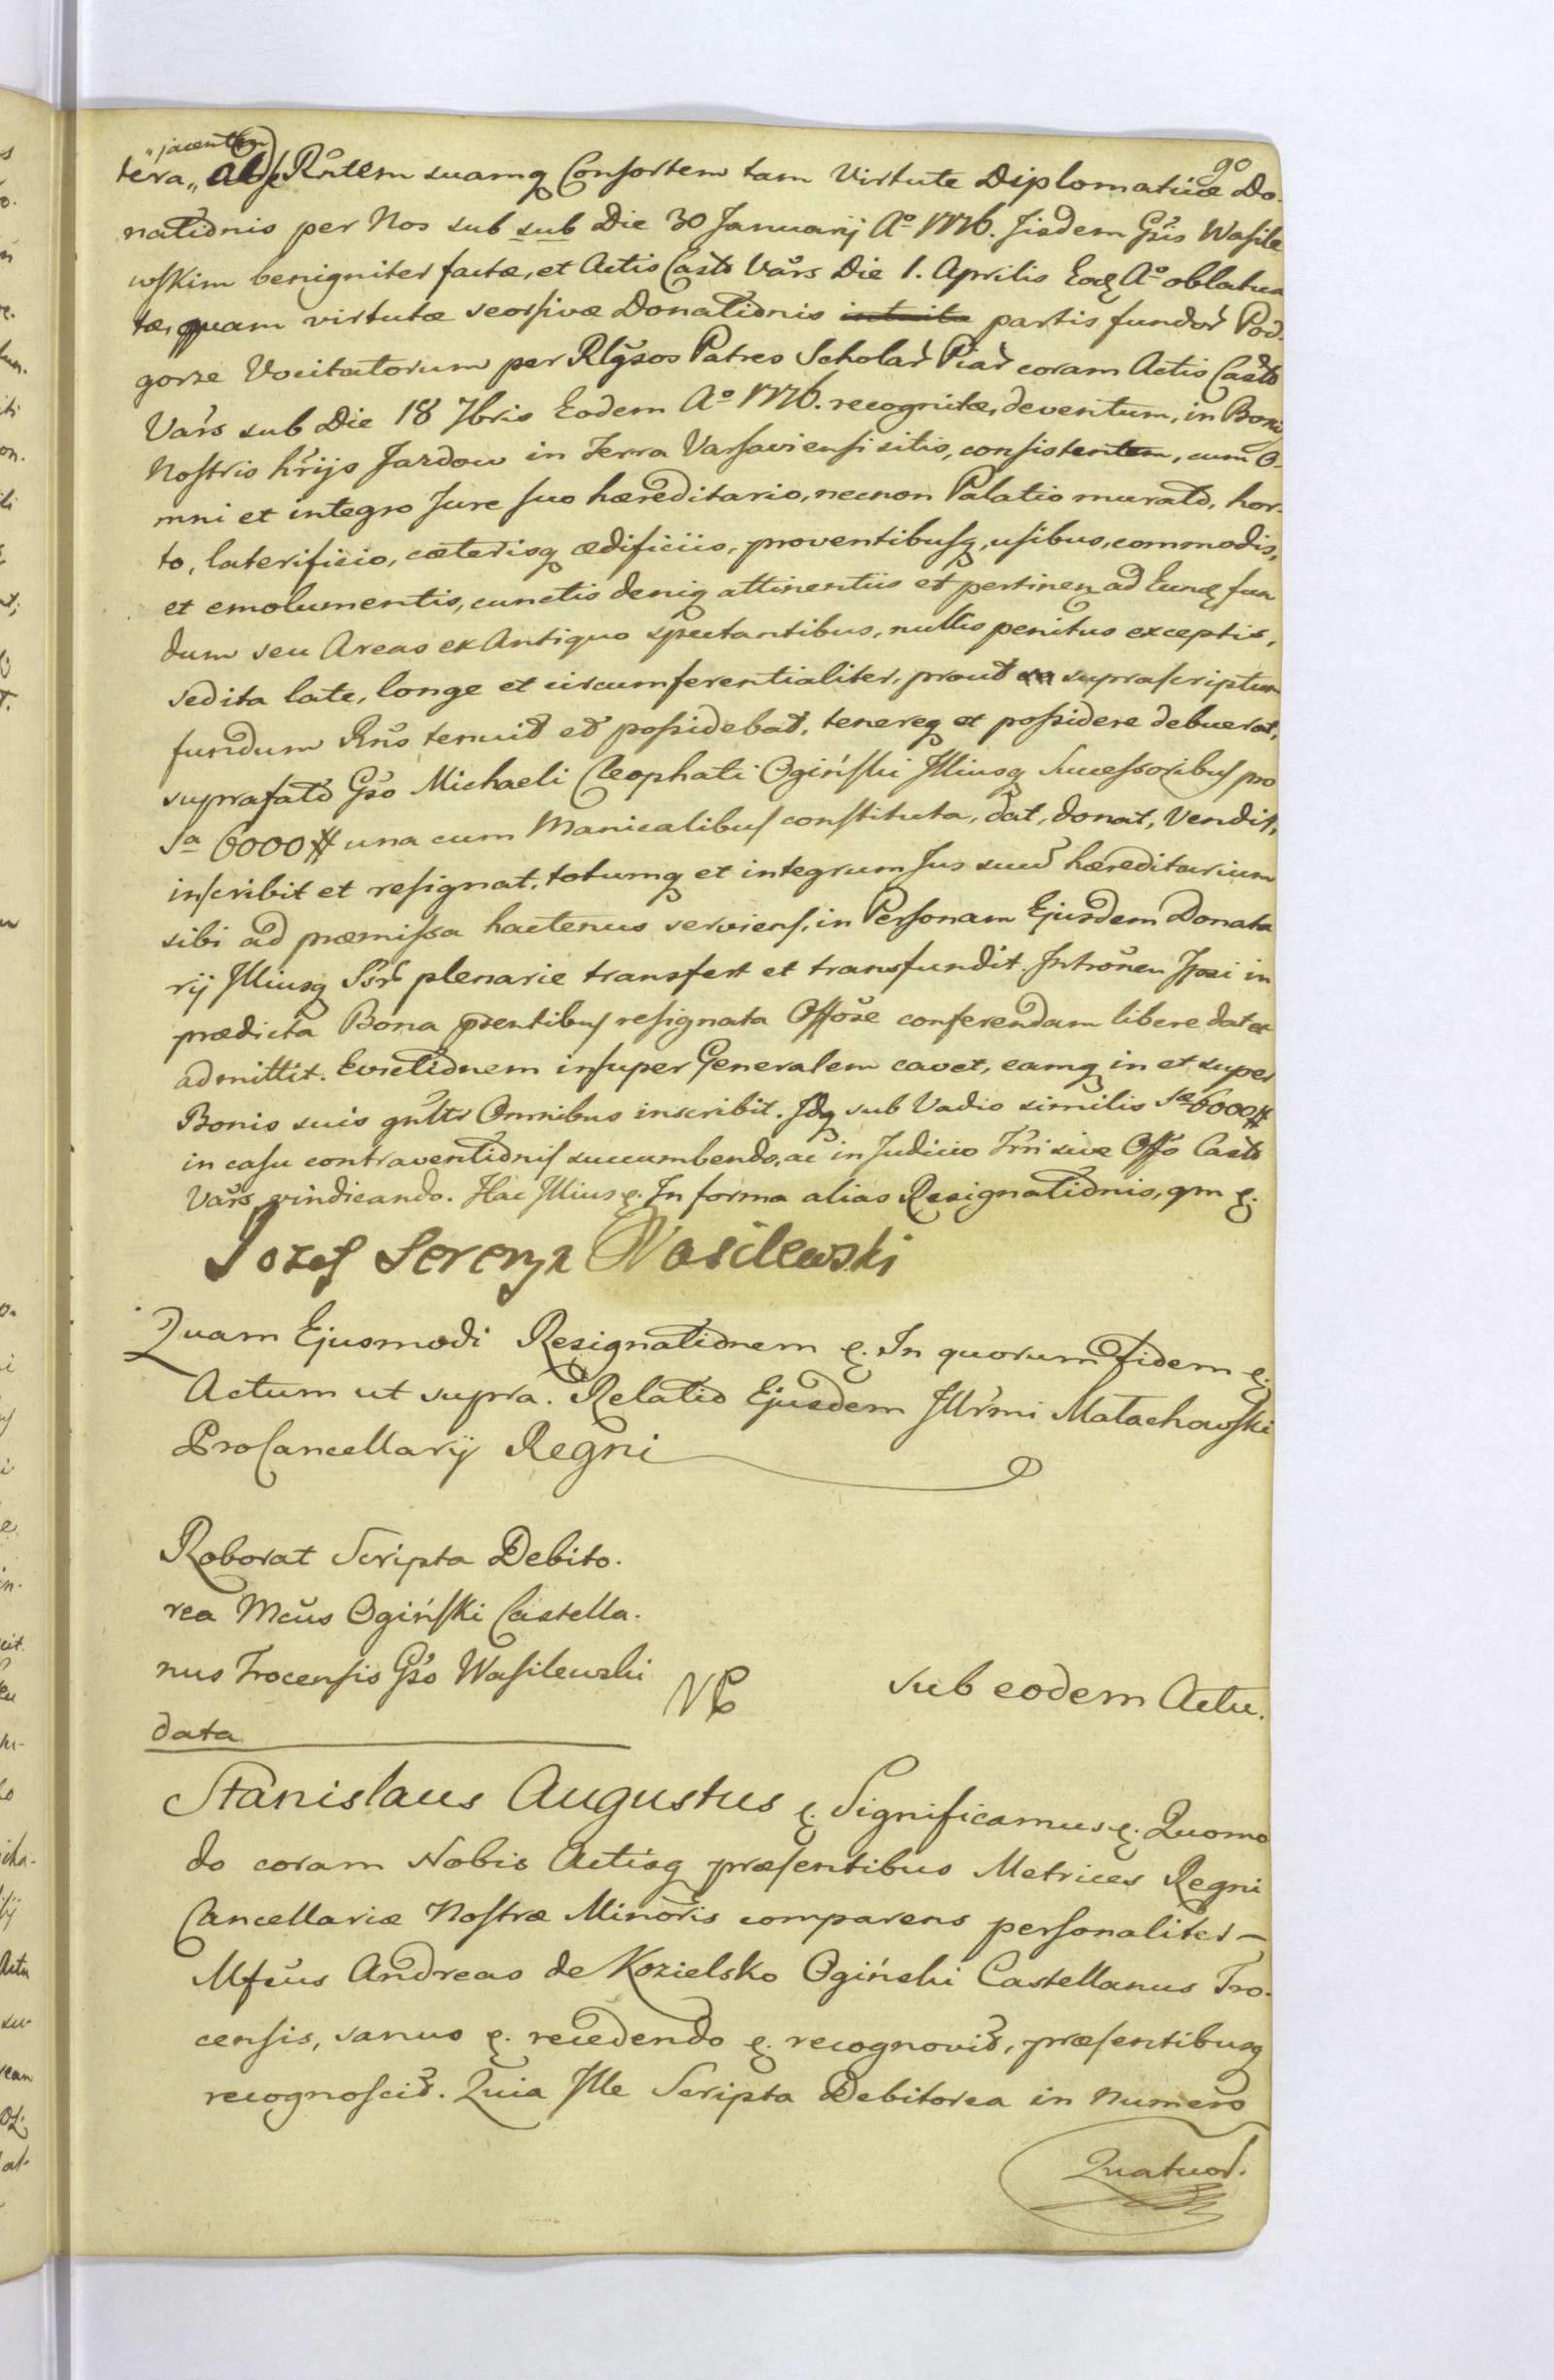 90
"jacentem
tera" ad Rntem suamq Consortem tam Virtute Diplomaticæ Do-
nationis per Nos sub sub Die 30 Januarij Aº 1776. Jisdem Gsis Wasile
wskim benigniter factæ, et Actis Castr Vars Die 1. Aprilis Eodq Aº oblatua
tæ, quam virtutæ seorsivæ Donationis partis fundor Pod-
gorze Vocitatorum per Rlgsos Patres Scholar Piar coram Actis Castr
Vars sub Die 18 7bris Eodem Aº 1776. recognitæ, deventum, in Bonis
Nostris hrijs Jazdow in Terra Varsaviensi sitis, consistentem, cum o-
mni et integro Jure suo hæreditario, necnon Palatio murato, hor-
to, laterificio, cæterisq ædificiis, proventibusq, usibus, commodis,
et emolumentis, cunctis deniq attinentiis et pertinen ad Eundq fun
dum seu Areas ex Antiquo spectantibus, nullis penitus exceptis,
sed ita late, longe et circumferentialiter, prout suprascriptum
fundum Rns tenuit et possidebat, tenereq et possidere debuerat,
suprafato Gso Michaeli Cleophati Ogiński Illiusq Successoribus pro
Sa 6000 # una cum Manicalibus constituta, dat, donat, Vendit,
inscribit et resignat, totumq et integrum Jus suu hæreditarium
sibi ad præmissa hactenus serviens, in Personam Ejusdem Donata
rij Illiusq Ssr plenarie transfert et transfundit. Intronen Ipsi in
prædicta Bona psentibus resignata Offose conferendam libere dat et
admittit. Evictionem insuper Generalem cavet, eamq in et super
Bonis suis gnltr Omnibus inscribit. Idq sub Vadio similis Sæ 6000 #
in casu contraventionis succumbendo, ac in Judicio Trri sive Offo Castr
Vars vindicando. Hac Illius ę. In forma alias Resignationis, qm ę.
Jozef Serczyk Wasilewski
Quam Ejusmodi Resignationem ę. In quorum Fidem ę.
Actum ut supra. Relatio Ejusdem Illrmi Małachowski
ProCancellarij Regni
Roborat Scripta Debito-
rea Mcus Ogiński Castella-
nus Trocensis Gso Wasilewski
data
sub eodem Actu.
Stanislaus Augustus ę. Significamus ę. Quomo
do coram Nobis Actisq præsentibus Metrices Regni
Cancellariæ Nostræ Minoris comparens personaliter –
Mfcus Andreas de Kozielsko Ogiński Castellanus Tro-
censis, sanus ę. recedendo ę. recognovit, præsentibusq
recognoscit. Quia Ille Scripta Debitorea in Numero
Quatuor.